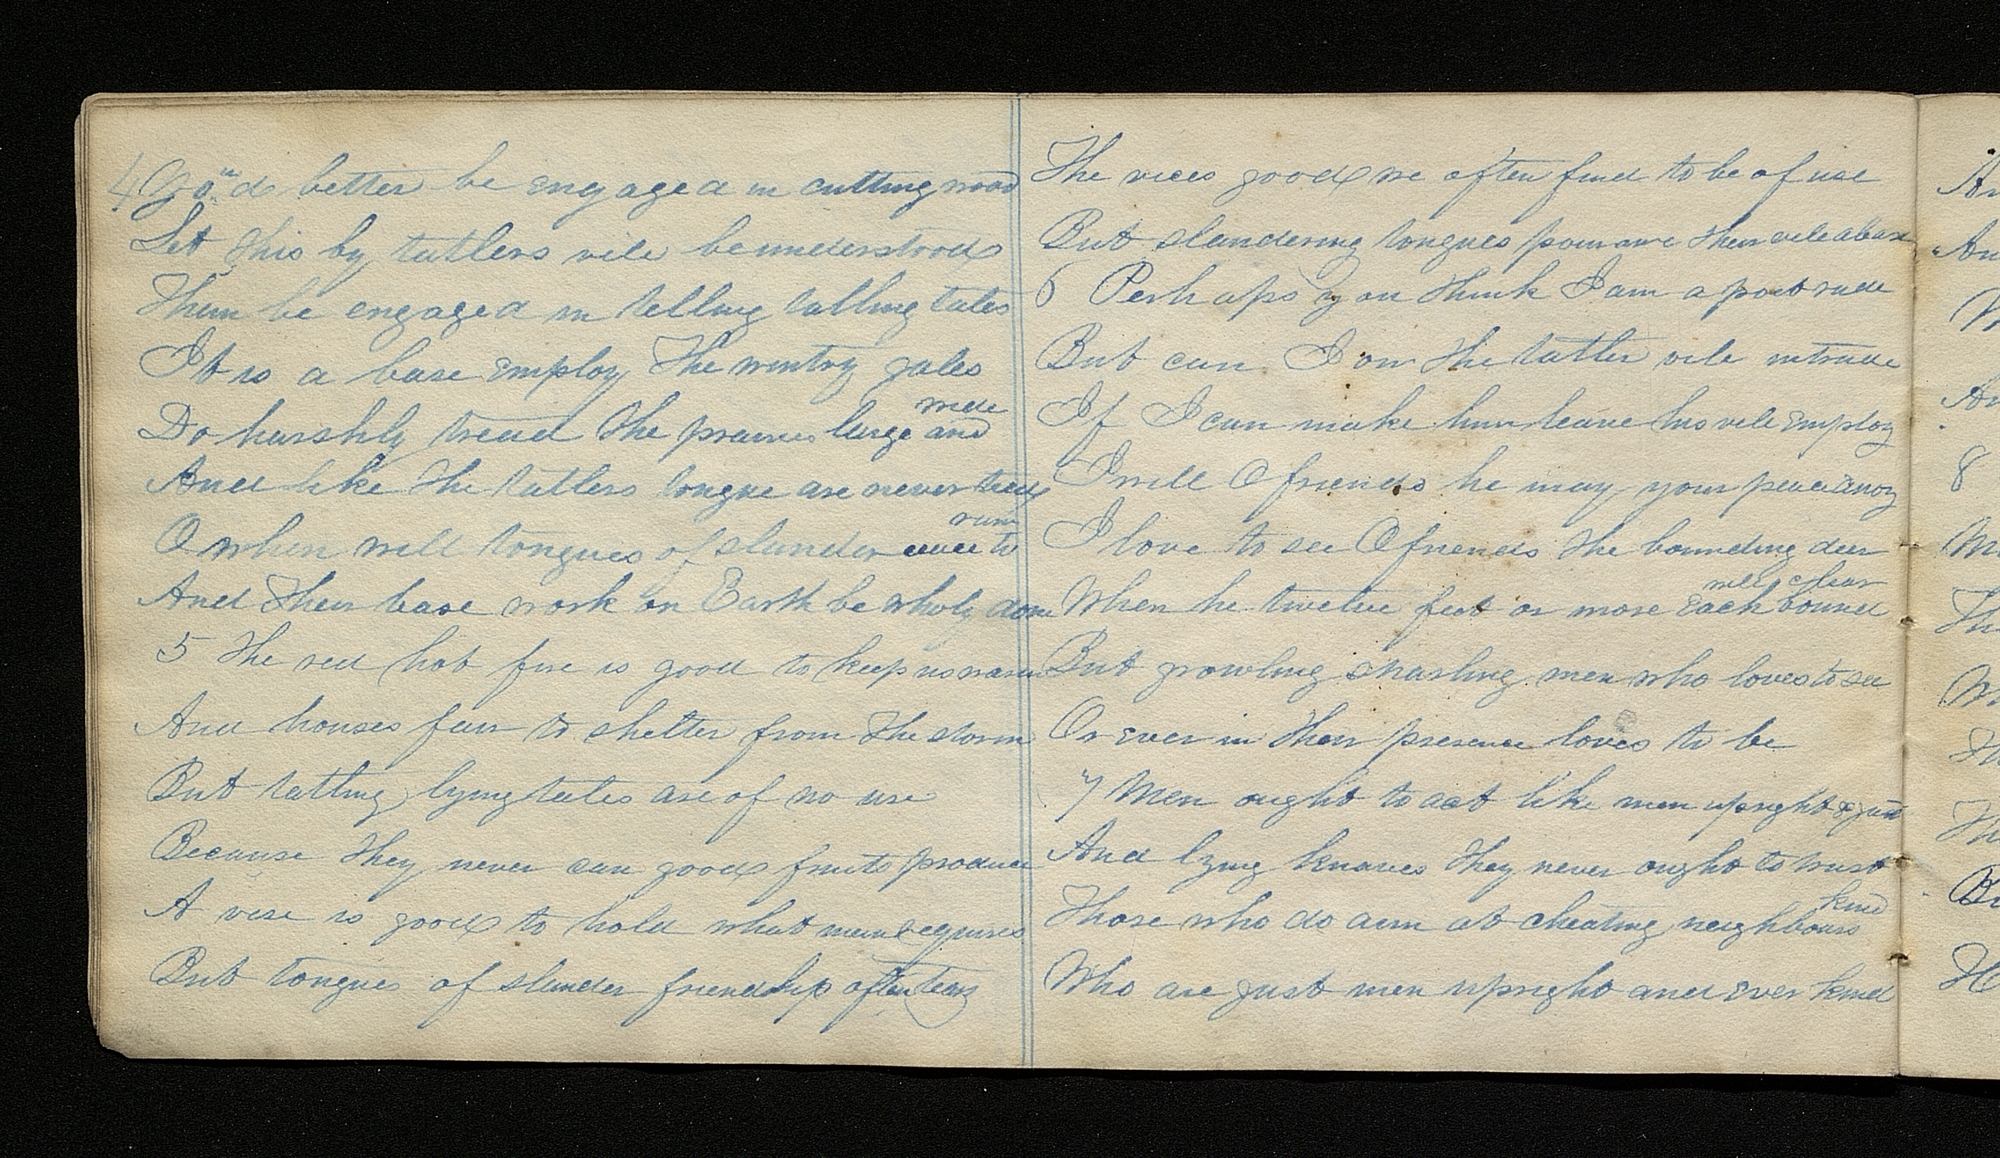 4 Yo"u"d better be engaged in cutting wood
Let this by tatlers vile be understood
Than be engaged in telling tatling tales
It is a base employ The wintry gales
wide
Do harshly tread the prairies large and
And like the tatlers tongue are never tied
run
O when will tongues of slander cease to
And their base work on Earth be wholy done
5 The red hot fire is good to keep us warm
And houses fair to shelter from the storm
But tatling lying tales are of no use
Because they never can good fruits produce
A vise is good to hold what man requires
But tongues of slander friendship often
The vices good we often find to be of use
But slandering tongues pour are their vile abuse
6 Perhaps you think I am a poet rude
But can I on the tatler vile intrude
If I can make him leave his vile employ
I will O friends he may your peace anoy
I love to see O friends the bounding deer
will clear
When he twelve feet or more Each bound
But growling snarling men who loves to see
Or ever in their presence loves to be
7 Men ought to act like men upright & just
And lying knaves they never ought to trust
kind
Those who do aim at cheating neighbours
Who are just men upright and ever kind
An
An
W
An
8
Th
W
Th
Th
B
H